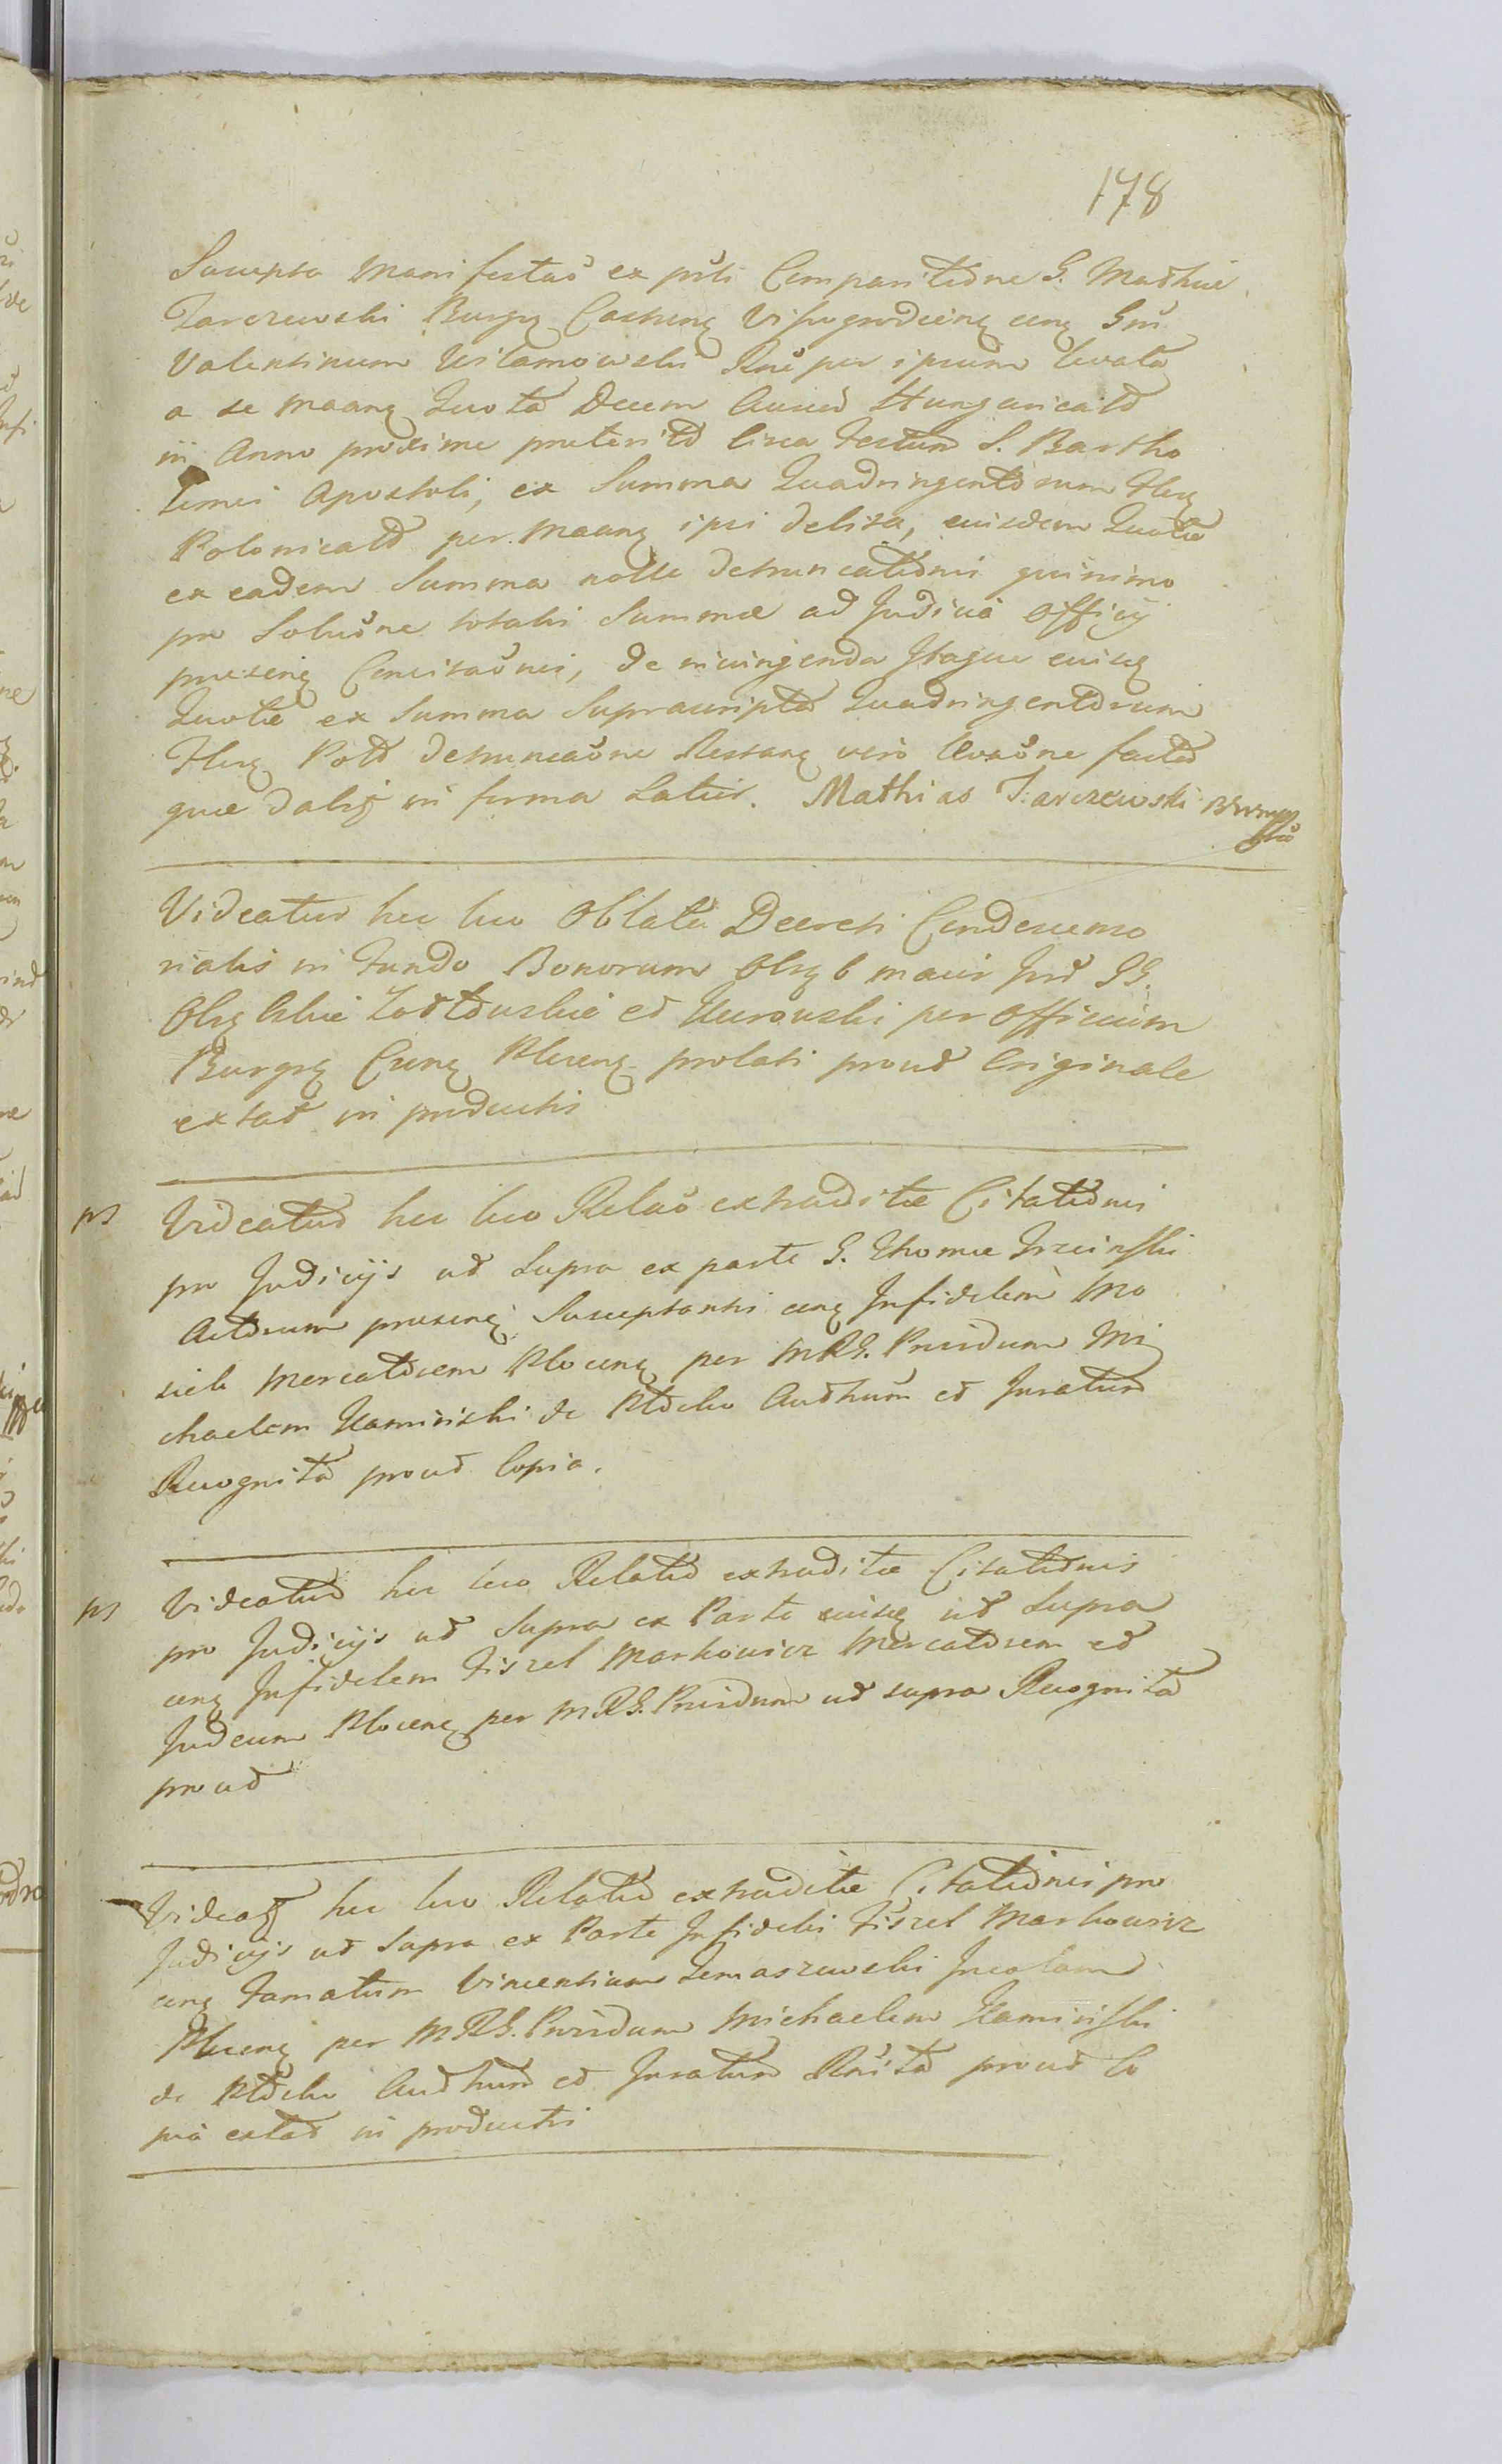 178
Suscepta Manifestao ex psti Comparitione G. Mathiæ
Jarczewski Burgr Castreng Vissogrodieng cong Gm
Valentinum Uilamowski Rne per ipsum levata
a se Maang Quota Decem Aureo Hungaricalt
in Anno proxime præterito circa Festum S. Bartho
lemei Apostoli, ex Summa Quadringentorum Flor
Polonicalt per Maang ipsi debita, eiusdem Quotæ
ex eadem Summa nolle detruncationis quinimo
pro Soluone totalis Summæ ad Judicia Officij
præseng Concitaonis, de infringenda Itaque eiusq
Quotæ ex Summa Suprascripta Quadringentorum
Flor Polt detruncaone Ressang vero levaone facta
quæ Dabig in forma Latius. Mathias Jarczewski
Videatur hic loco Oblata Decreti Condescenso
rialis in Fundo Bonorum inter GG.
et Kurowski per Officium
Burgr Ploceng prolati prout Originale
extat in productis
ps Videatur hic loco Relao extraditæ Citationis
pro Judicijs ut Supra ex parte G. Thomæ
Actorum præseng Susceptantis cong Infidelem Mo
siek Mercatorem Ploceng per MRG. Providum Mi
chaelem Kaminski de Plocko Authum et Juratum
Recognita prout Copia.
ps Videatur hic loco Relatio extraditæ Citationis
pro Judicijs ut Supra ex Parte eiusq ut Supra
cong Infidelem Fiszel Markowicz Mercatorem et
Judeum Ploceng per MRG. Providum ut supra Recognita
prout
Videatr hic loco Relatio extraditæ Citationis pro
Judicijs ut Supra ex Parte Infidelis Fiszel Markowicz
cong Famatum Vincentium Tomaszewski Incolam
Ploceng per MRG. Providum Michaelem Kaminski
de Plocko Authum et Juratum Rnita prout Co
pia extat in productis